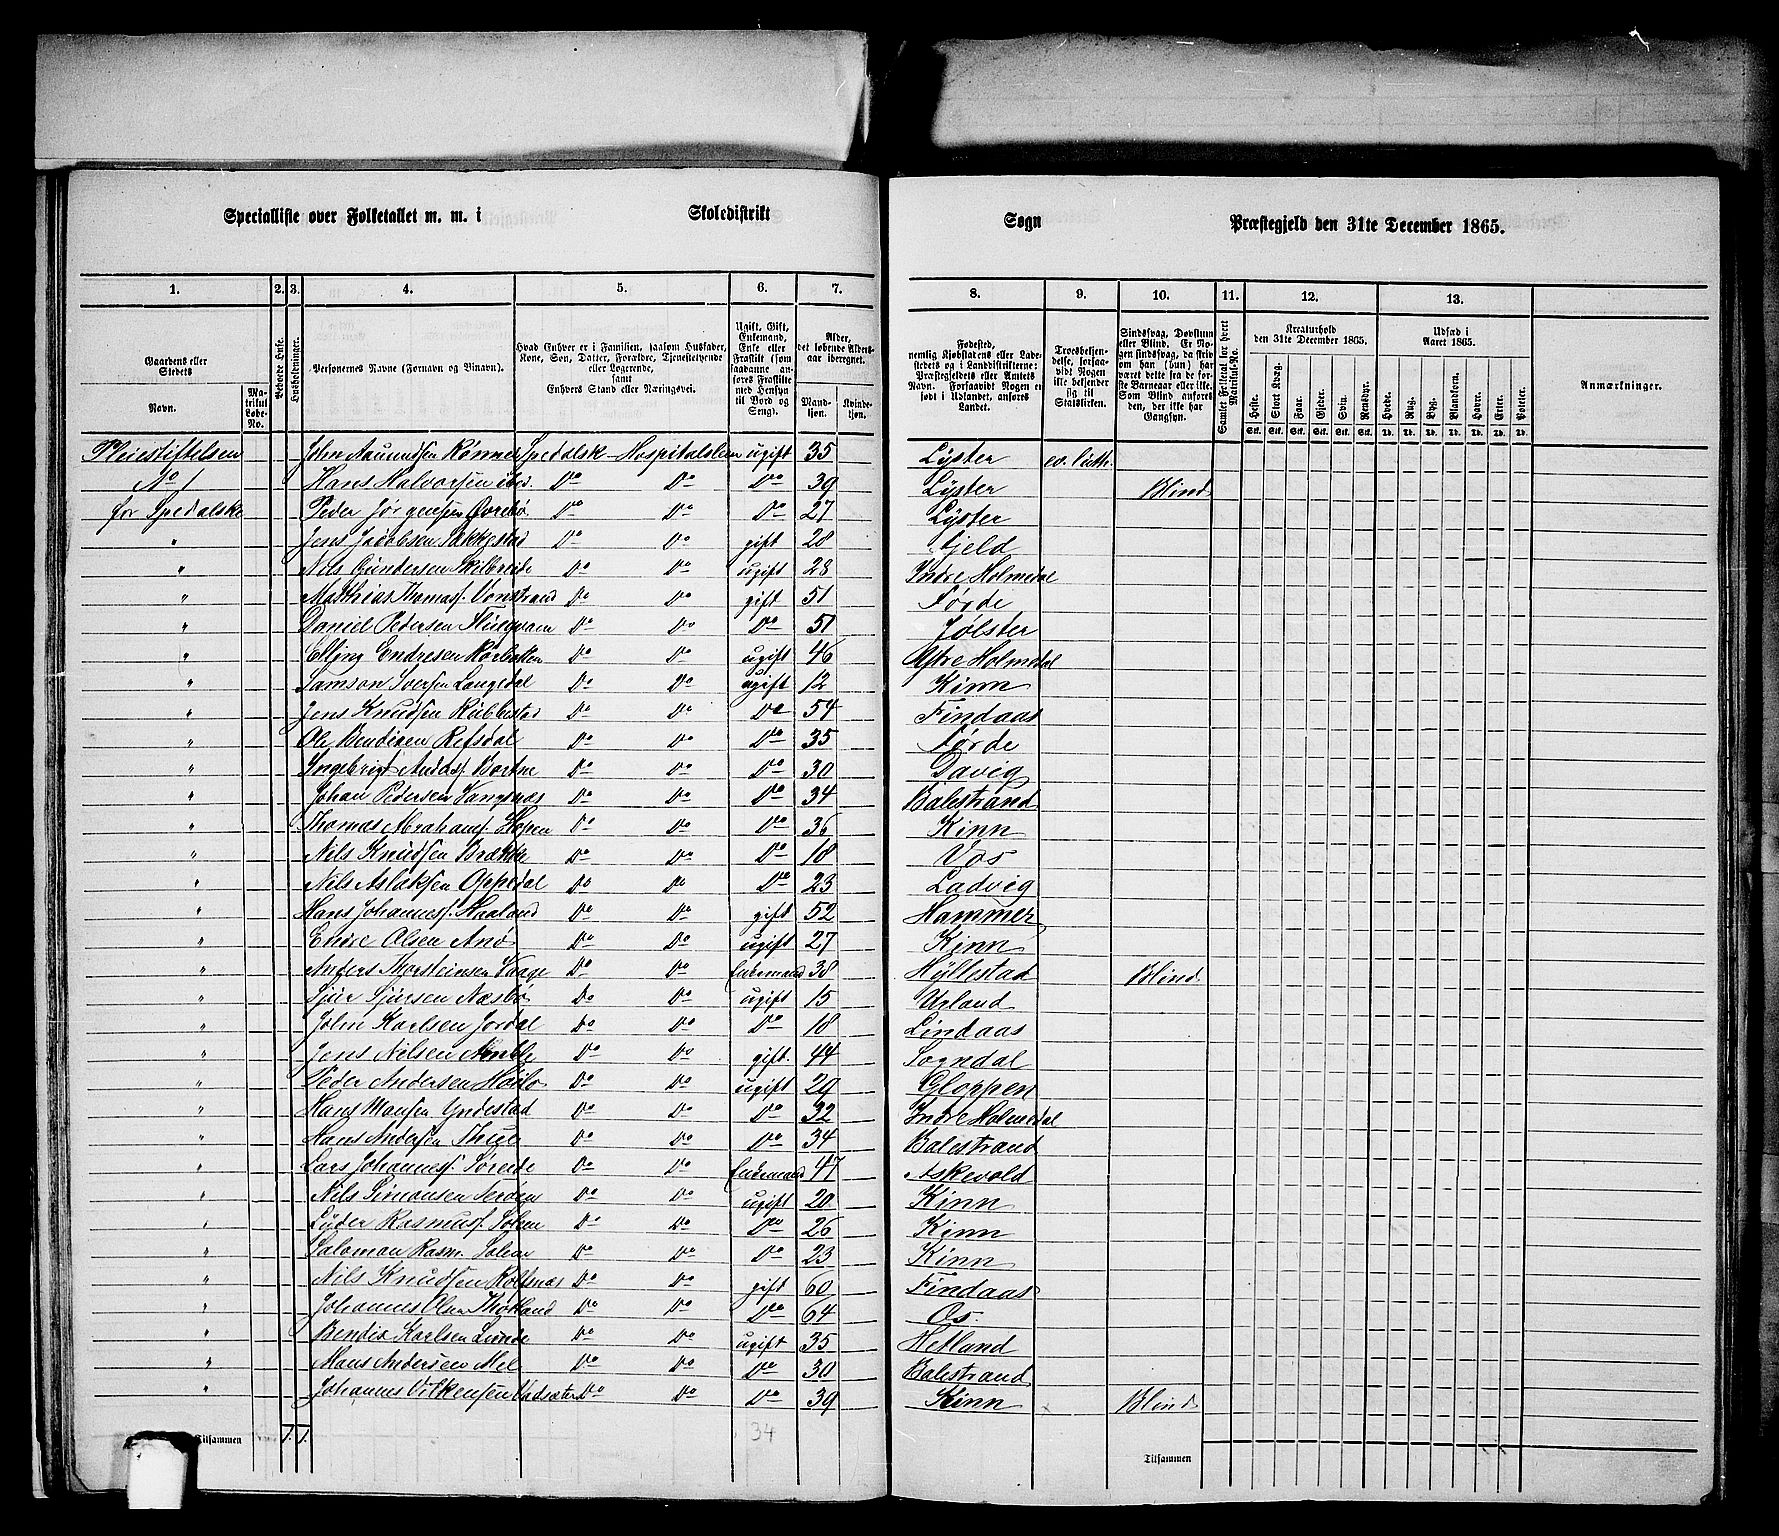 Specialliste over Folketallet m. m. i Skoledistrikt Sogn Præstegjeld den 31te December 1865.
1. 2. 3. 4. 5. 6. 7. 8. 9. 10. 11. 12. 13.
Gaardens eller Stedets
Navn.
Matrikul Løbe-No.
Beboede Huse.
Husholdninger.
Personernes Navne (Fornavn og Binavn).
Hvad Enhver er i Familien, saasom Husfader, Kone, Søn, Datter, Forældre, Tjenestetyende eller Logerende, samt Enhvers Stand eller Næringsvei.
Ugift, Gift, Enkemand, Enke eller Fraskilt (som saadanne anføres Fraskilte med Hensyn til Bord og Seng).
Alder, det løbende Alders-aar iberegnet.
Mandkjøn. Kvindekjøn.
Fødested, nemlig Kjøbstadens eller Ladestedets og i Landdistrikterne: Præstegjeldets eller Amtets Navn. Forsaavidt Nogen er født i Udlandet, anføres Landet.
Troesbekjendelse, forsaavidt Nogen ikke bekjender sig til Statskirken.
Sindssvag, Døvstum eller Blind. Er Nogen sindssvag, da skriv om han (hun) har været dette før Barnealderen eller ikke. Som Blind anføres den, der ikke har Gangsyn.
Samlet Folketal for hvert Matrikul-No.
Kreaturhold den 31te December 1865.
Heste. Stort Kvæg. Faar. Gjeder. Svin. Rensdyr.
Stk. Stk. Stk. Stk. Stk. Stk.
Udsæd i Aaret 1865.
Hvede. Rug. Byg. Blandkorn. Havre. Erter. Poteter.
Td. Td. Td. Td. Td. Td. Td.
Anmærkninger.
Pleiestiftelsen John Aamundsen Rønnei Spedalsk-Hospitalslem ugift 35 Lyster ev. luth.
No 1 Hans Halvorsen ibid. Do Do Do 39 Lyster Blind
for Spedalske Peder Jørgensen Do Do Do 27 Lyster
" Jens Jacobsen Do Do gift 28 Fjeld
" Nils Gundersen Skilbreide Do Do ugift 28 Indre Holmedal
" Matthias Thomasf. Do Do gift 51 Førde
" Daniel Pedersen Do Do Do 51 Jølster
" Elling Endresen Do Do ugift 46 Ytre Holmedal
" Samson Iversen Langedal Do Do ugift 12 Kinn
" Jens Knudsen Rubbestad Do Do Do 54 Findaas
" Ole Bendixen Refsdal Do Do Do 35 Førde
" Ingebrigt Andersf. Bortne Do Do Do 30 Davig
" Johan Pedersen Vangsnæs Do Do Do 34 Balestrand
" Thomas Abrahamsf. Hopen Do Do Do 36 Kinn
" Nils Knudsen Brække Do Do Do 18 Vos
" Nils Aslaksen Oppedal Do Do Do 23 Ladvig
" Hans Johannesf. Haaland Do Do gift 52 Hammer
" Endre Olsen Anø Do Do ugift 27 Kinn
" Anders Thorsteinsen Vaage Do Do Enkemand 38 Hyllestad Blind
" Sjur Sjursen Næsbø Do Do ugift 15 Urland
" John Karlsen Jordal Do Do Do 18 Lindaas
" Jens Nilsen Do Do gift. 44 Sogndal
" Peder Andersen Do Do ugift 29 Gloppen
" Hans Monsen Yndestad Do Do Do 32 Indre Holmedal
" Hans Andersen Thue Do Do Do 34 Balestrand
" Lars Johannesf. Søreide Do Do Enkemand 47 Askevold
" Nils Simonsen Do Do ugift 20 Kinn
" Lyder Rasmusf. Solem Do Do Do 26 Kinn
" Salomon Rasm. Solem Do Do Do 23 Kinn
" Nils Knudsen Do Do gift 60 Findaas
" Johannes Olsen Do Do Do 64 Os.
" Bendix Karlsen Lunde Do Do ugift 35 Hetland
" Hans Andersen Mel Do Do Do 30 Balestrand
" Johannes Vilkensen Vadsæter Do Do Do 39 Kinn Blind
Tilsammen 7. 7. 34 Tilsammen